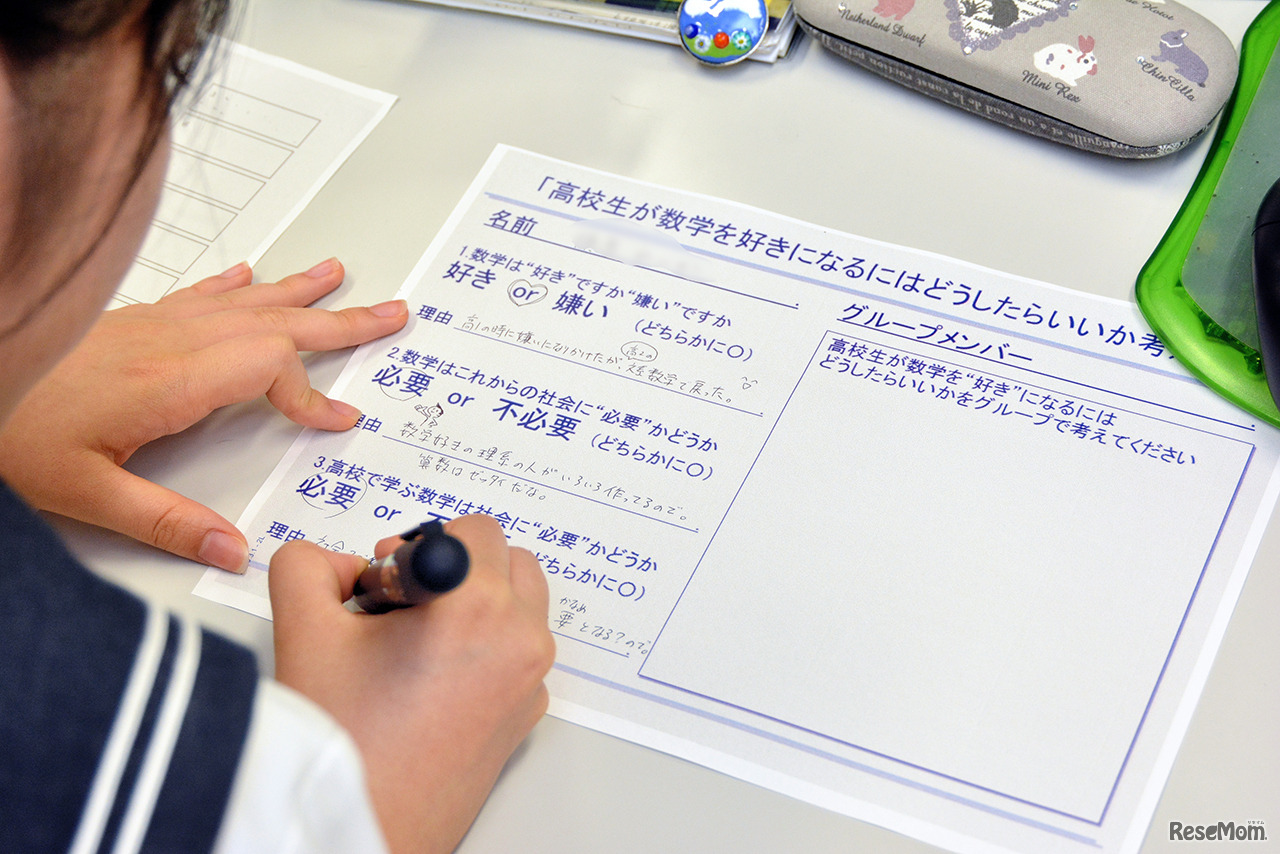 Netherland Dwarf
Mini Rex
ChinCilla
「高校生が数学を好きになるにはどうしたらいいか考
名前
1.数学は“好き”ですか“嫌い”ですか
好き or 嫌い (どちらかに〇)
理由 高1の時に嫌いになりかけたが、高2の数学で戻った。
2.数学はこれからの社会に“必要”かどうか
必要 or 不必要 (どちらかに〇)
理由 数学好きの理系の人がいろいろ作ってるので。
算数はゼッタイだな。
3.高校で学ぶ数学は社会に“必要”かどうか
必要 or
どちらかに〇)
理由
かなめ
要となる?ので。
グループメンバー
高校生が数学を“好き”になるには
どうしたらいいかをグループで考えてください
ReseMom